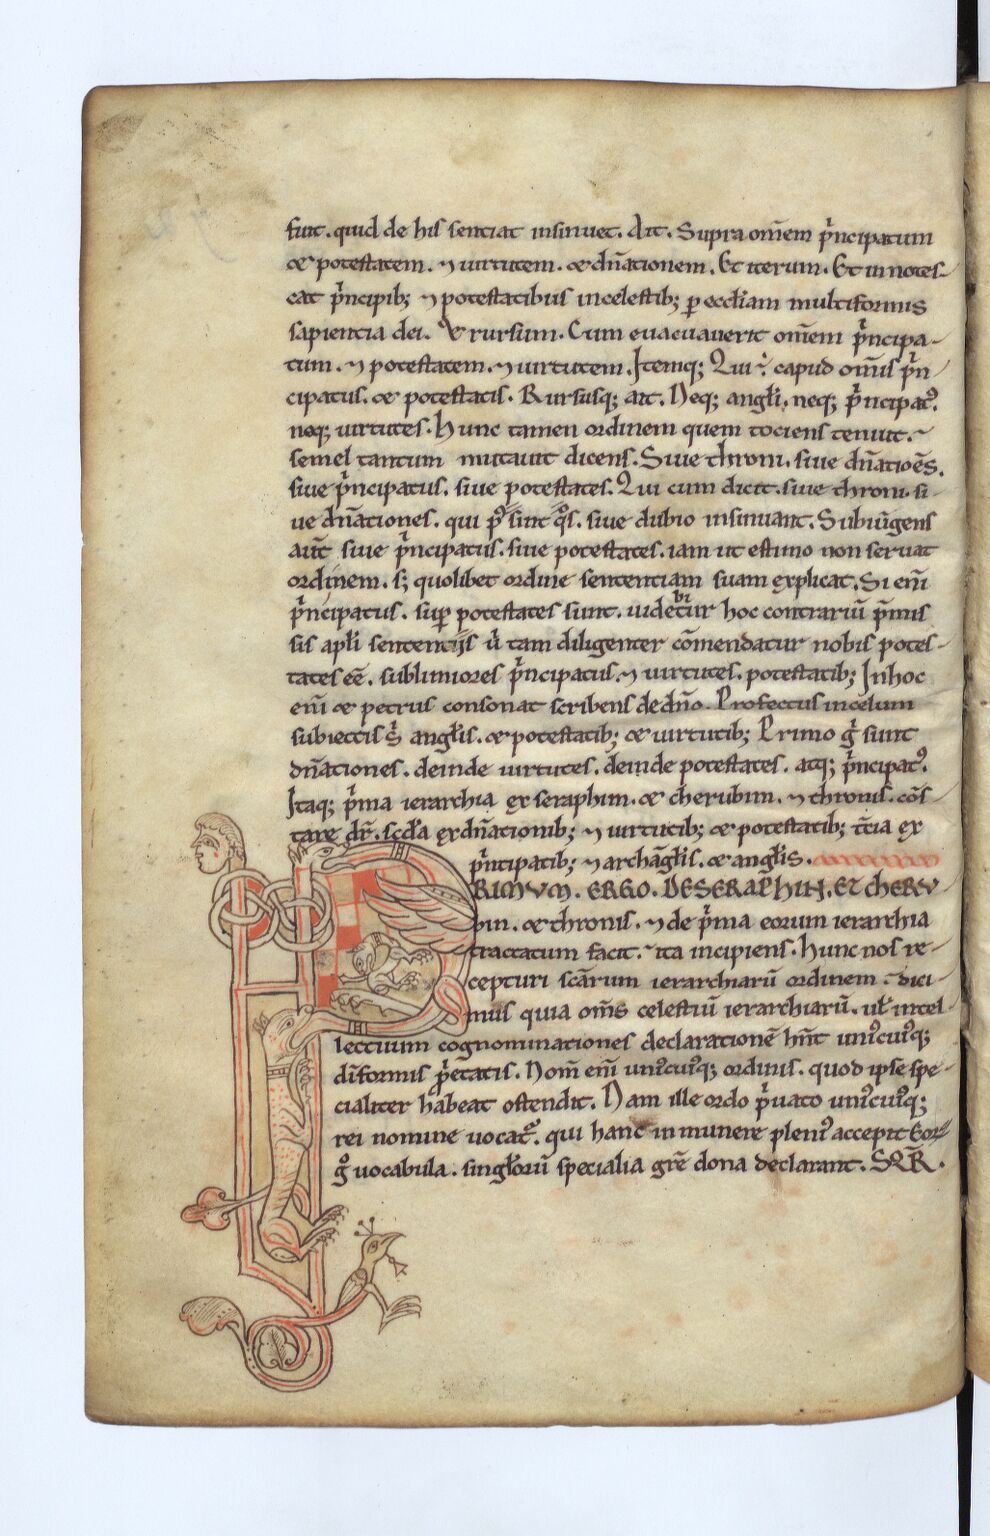 fuit. quid de his sentiat insinuet. Ait. Supra om̄em p͛ncipatum
& potestatem. ⁊ uirtutem. & dn̄ationem. Et iterum. Et innotes-
cat p͛ncipib; ⁊ potestatibus incelestib; ꝑ eccłiam multiformis
sapientia dei. & rursum. Cum euacuauerit om̄em p͛ncipa-
tum. ⁊ potestatem. ⁊ uirtutem. Itemq; Qui ÷ capud om̄is p͛n
cipatus. & potestatis. Rursusq; ait. Neq; angłi. neq; p͛ncipat᾽.
neq; uirtutes. Hunc tamen ordinem quem tociens tenuit.
semel tantum mutauit dicens. Siue throni. siue dn̄atioēs.
siue p͛ncipatus. siue potestates. Qui cum dicit. siue throni. si-
ue dn̄ationes. qui p᾽ sint qͦs. siue dubio insinuant. Subiūgens
aut̄ siue p͛ncipatus. siue potestates. iam ut estuno non seruat
ordinem. s; quolibet ordine sententiam suam explicat. Si eni̅
p͛ncipatus. suꝑ potestates sunt. uidetur hoc contrariū p͛mis
sis apłi sententiis u͛ tam diligenter cōmendatur nobis potes-
tates eē. sublimiores p͛ncipatus. ⁊ uirtutes. potestatib; Inhoc
eni̅ & petrus consonat scribens dedn̄o. Profectus incelum
subiectis s͛ angłis. & potestatib; & uirtutib; Primo g͛ sunt
dn̄ationes. deinde uirtutes. deinde potestates. atq; p͛ncipat᾽.
Itaq; p͛ma ierarchia ex seraphim. & cherubim. ⁊ thronis. cōs-
tare dr̄. scd̄a exdn̄ationib; ⁊ uirtutib; & potestatib; t̄cia ex
p͛ncipatib; ⁊ archāgłis. & angłis.
PRIMVM. ERGO. DESERAPHIN. ET CHERV
bin. & thronis. ⁊ de p͛ma eorum ierarchia
tractatum facit. ita incipiens. Hunc nos re-
cepturi scārum ierarchiarū ordinem dici-
mus quia om̄s celestiū ierarchiarū. uł intel-
lectuum cognominationes declarationē hn̄t uni᾽cui᾽q;
dīformis p͛etatis. Nom̄ eni̅ uni᾽cui᾽q; ordinis. quod ipse spe-
cialiter habeat ostendit. Nam ille ordo p͛uato uni᾽cui᾽q;
rei nomine uocat᾽. qui hanc in munere pleni᾽ accepit Eoꝝ
g͛ uocabula. singłorū specialia gr̄e dona declarant. SQR̄.